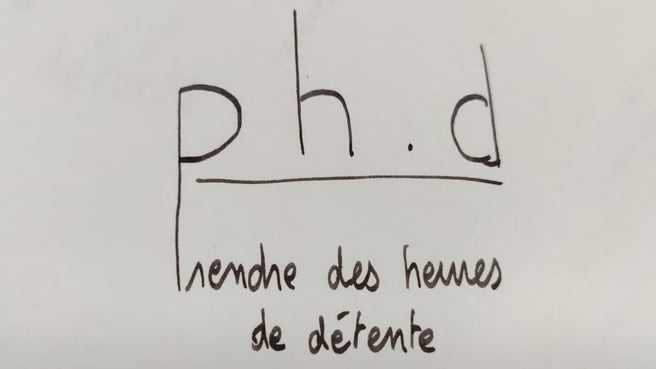 ph.d
Prendre des heures
de détente